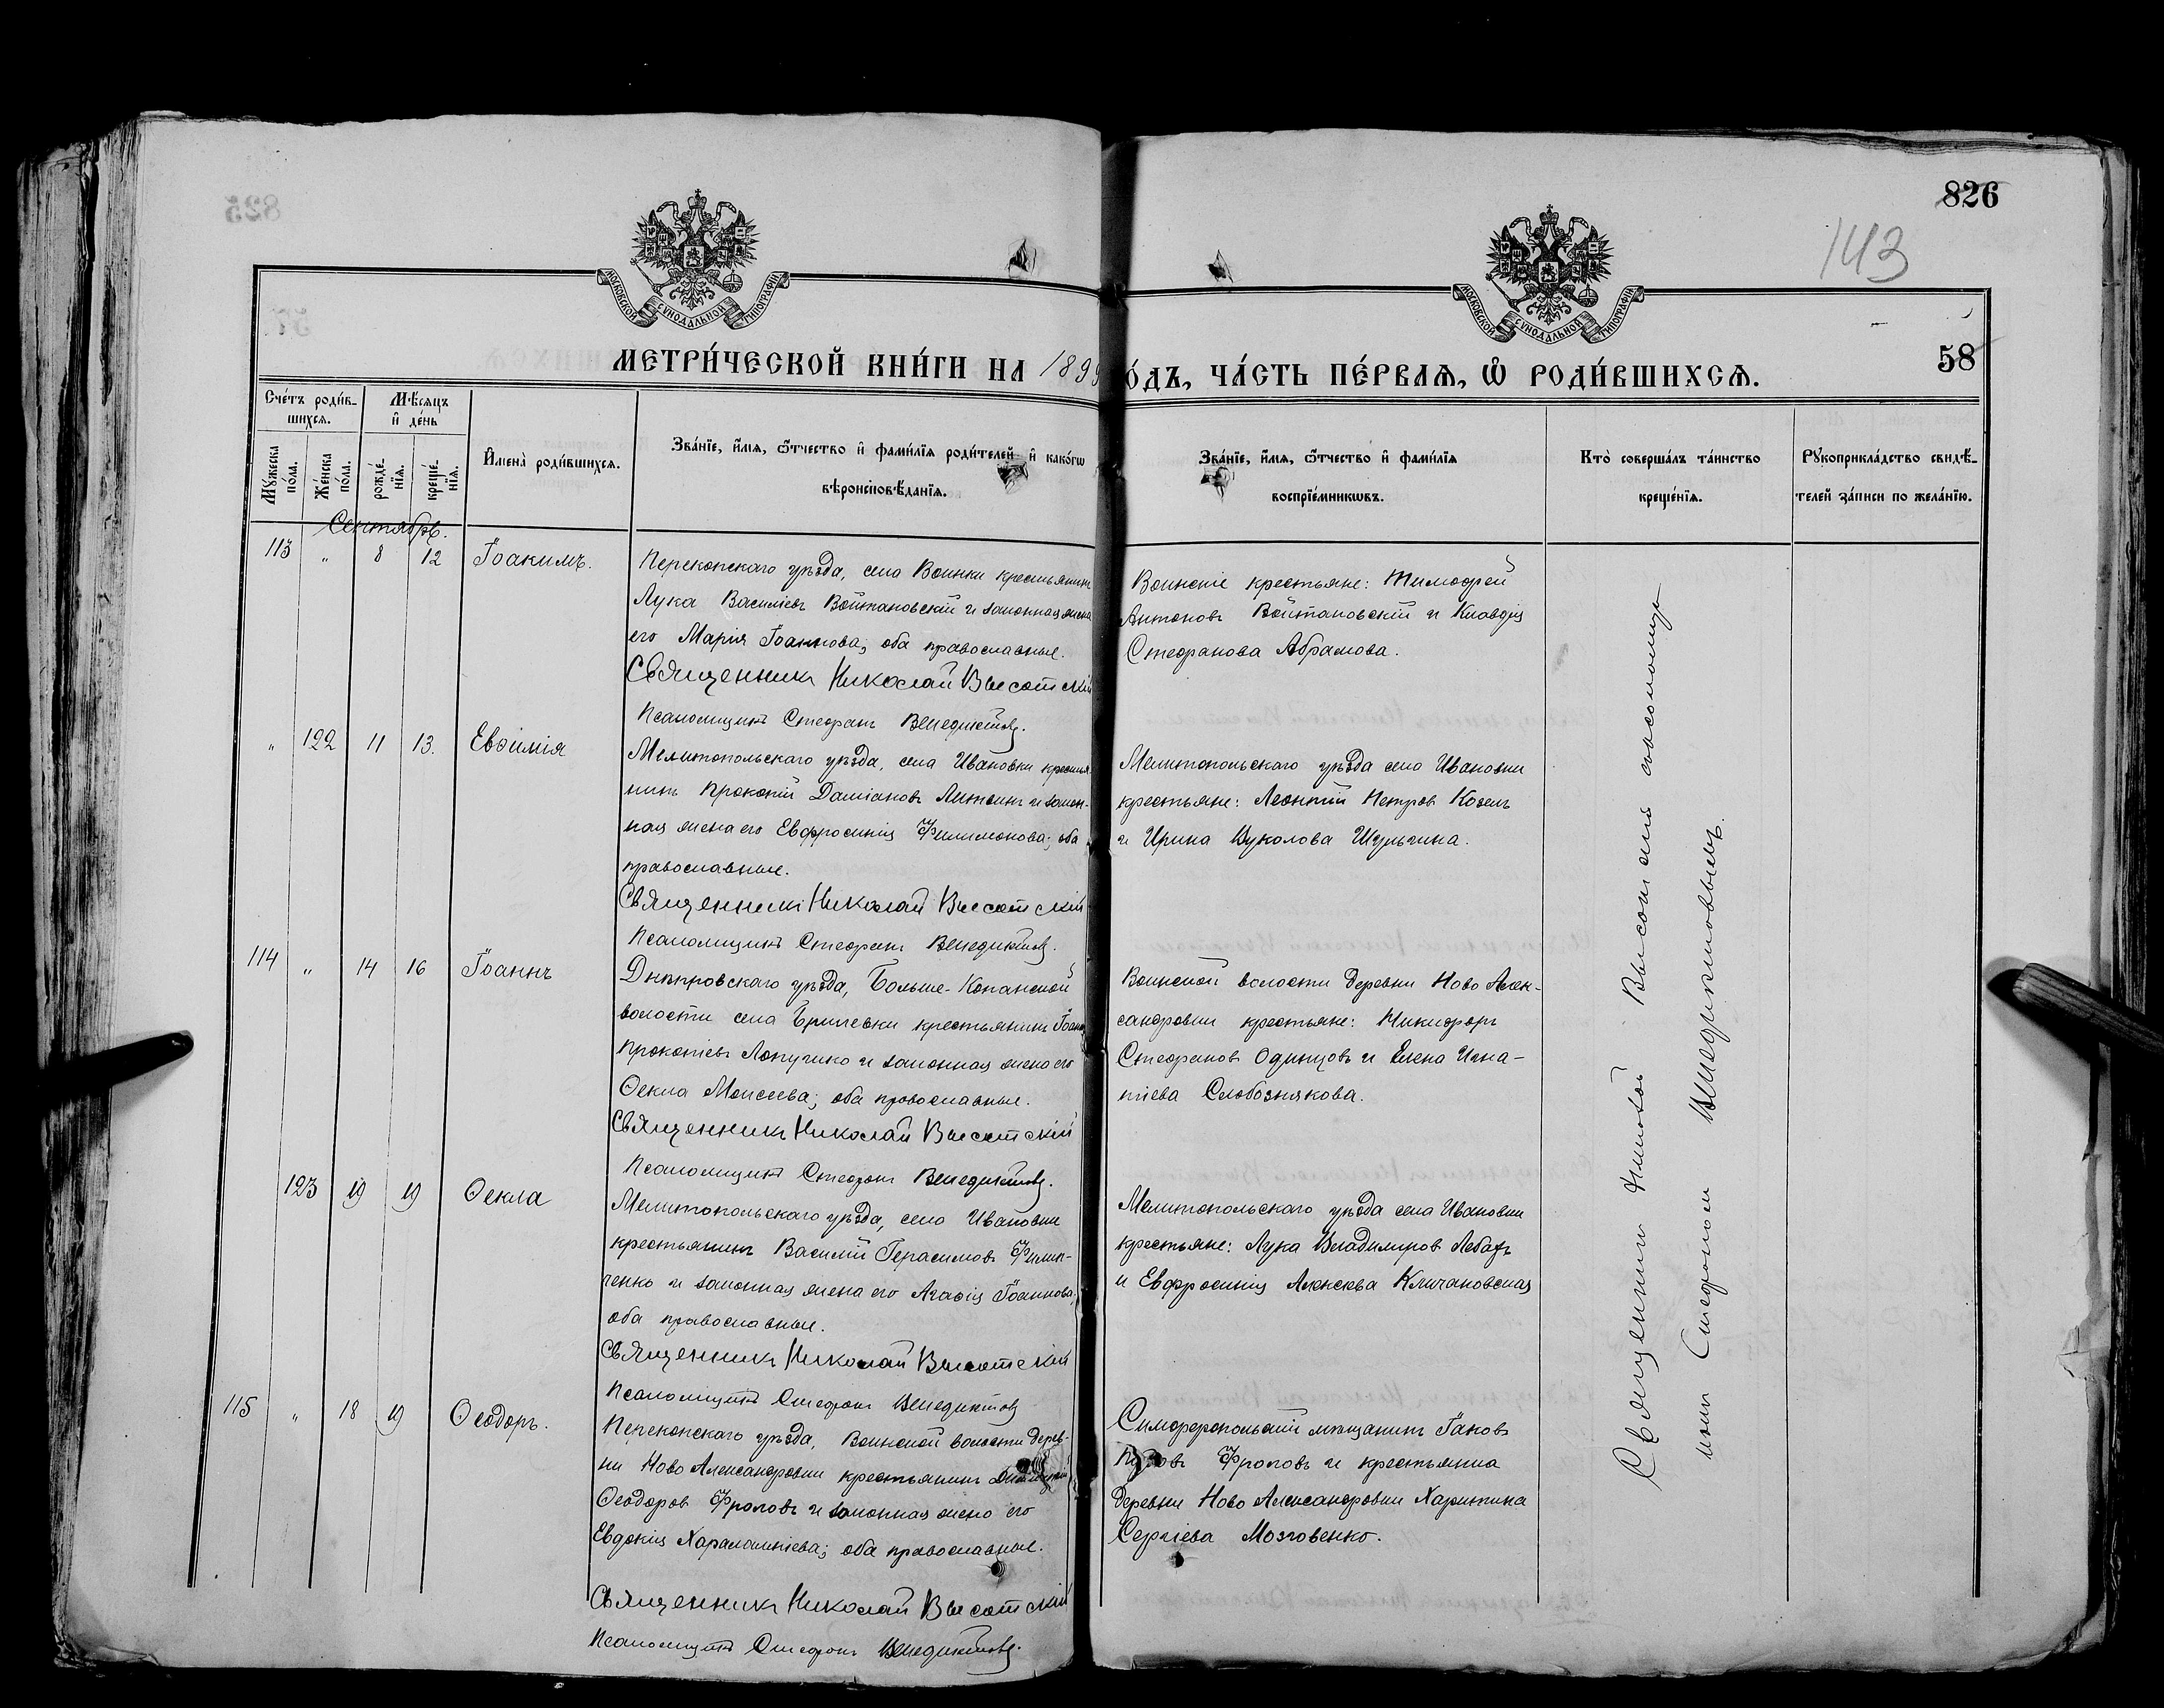 826
143
МОСКОВСКОЙ СѴНОДАЛЬНОЙ ТИПОГРАФІИ
МОСКОВСКОЙ СѴНОДАЛЬНОЙ ТИПОГРАФІИ
58
МЕТРИ́ЧЕСКОЙ КНИ́ГИ НА 1899 О́ДЪ, ЧА́СТЬ ПЕ́РВАѦ, Ѡ РОДИ́ВШИХСѦ.
Сче́тъ роди́в-
шихсѧ.
Мѣ́сѧцъ
и де́нь
Мꙋ́жеска по́ла.
Же́нска по́ла.
рожде́-
нїѧ.
креще́-
нїѧ.
И҆мена̀ роди́вшихсѧ.
Зва́нїе, и҆́мѧ, ѻ҆́тчество и҆ фами́лїѧ роди́телей и҆ како́гѡ
вѣроисповѣ́данїѧ.
Зва́нїе, и҆́мѧ, ѻ҆́тчество и҆ фами́лїѧ
воспрїе́мникѡвъ.
Кто̀ соверша́лъ та́инство
креще́нїѧ.
Рꙋкоприкла́дство свидѣ́-
телей за́писи по жела́нїю.
Сентябрь.
113 " 8 12 Іоакимъ.
Перекопскаго уѣзда, села Воинки крестьянинъ
Лука Василіевъ Войтановскій и законная жена
его Марія Іоаннова; оба православные.
Священникъ Николай Высотскій
Псаломщикъ Стефанъ Венедиктовъ.
Воинскіе крестьяне: Тимофей
Антоновъ Войтановскій и Клавдія
Стефанова Абрамова.
" 122 11 13. Евѳимія
Мелитопольскаго уѣзда, села Ивановки крестья-
нинъ Прокопій Даміановъ Литвинъ и закон-
ная жена его Евфросинія Филимонова; оба
православные.
Священникъ Николай Высотскій
Псаломщикъ Стефанъ Венедиктовъ.
Мелитопольскаго уѣзда села Ивановки
крестьяне: Леонтій Петровъ Козелъ
и Ирина Вуколова Шульгина.
114 " 14 16 Іоаннъ
Днѣпровскаго уѣзда, Больше-Копанской
волости села Брилевки крестьянинъ Іоаннъ
Прокопіевъ Лопучико и законная жена его
Ѳекла Моисеева; оба православные.
Священникъ Николай Высотскій
Псаломщикъ Стефанъ Венедиктовъ.
Воинской волости деревни Ново Алек-
сандровки крестьяне: Никифоръ
Стефановъ Одинцовъ и Елена Игна-
тіева Слобознякова.
123 19 19 Ѳекла
Мелитопольскаго уѣзда, села Ивановки
крестьянинъ Василій Герасимовъ Филип-
ченко и законная жена его Агафія Іоаннова,
оба православные.
Священникъ Николай Высотскій
Псаломщикъ Стефанъ Венедиктовъ
Мелитопольскаго уѣзда села Ивановки
крестьяне: Лука Владимировъ Лебедь
и Евфросинія Алексѣева Кличановская
115 " 18 19 Ѳеодоръ.
Перекопскаго уѣзда, Воинской волости дерев-
ни Ново Александровки крестьянинъ Димитрій
Ѳеодоровъ Фроловъ и законная жена его
Евдокія Харалампіева; оба православные.
Священникъ Николай Высотскій
Псаломщикъ Стефанъ Венедиктовъ.
Симферопольскій мѣщанинъ Іаковъ
Фроловъ и крестьянка
деревни Ново Александровки Харитина
Сергіева Мозговенко.
Священникъ Николай Высотскій съ псаломщи-
комъ Стефаномъ Венедиктовымъ.